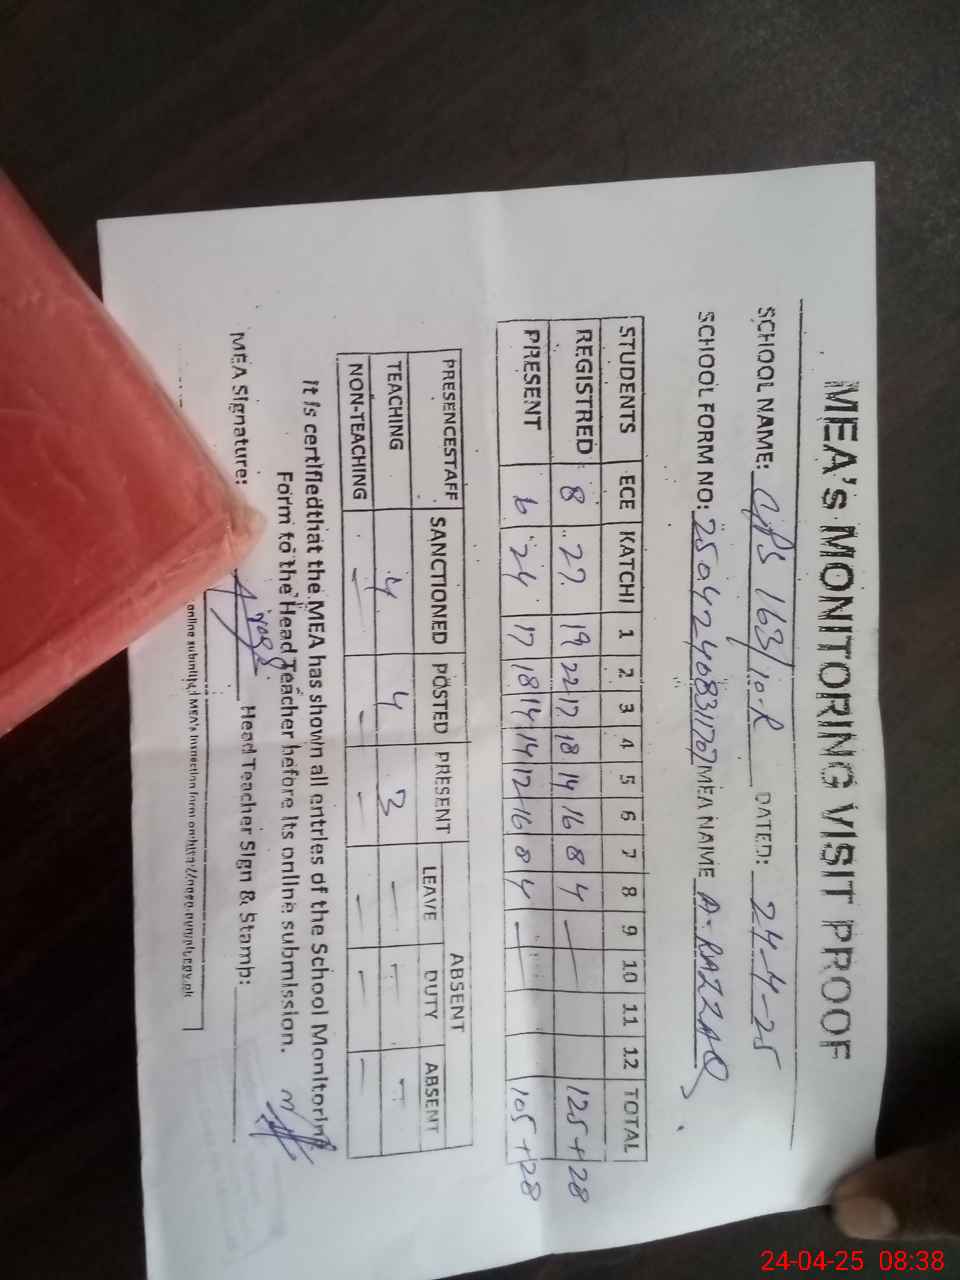 MEA's MONITORING VISIT PROOF
SCHOOL NAME: GPS 163/10-R DATED: 24-4-25
SCHOOL FORM NO: 2504240831707 MEA NAME A. RAZZAQ
STUDENTS ECE KATCHI 1 2 3 4 5 6 7 8 9 10 11 12 TOTAL
REGISTRED 8 27 19 22 17 18 14 16 8 4 — 125+28
PRESENT 6 24 17 18 14 14 12 16 8 4 — 105+28
PRESENCESTAFF SANCTIONED POSTED PRESENT ABSENT
LEAVE DUTY ABSENT
TEACHING 4 4 3 — — —
NON-TEACHING — — — — — —
It is certifiedthat the MEA has shown all entries of the School Monitoring
Form to the Head Teacher before its online submission.
MEA Signature: Head Teacher Sign & Stamp:
online submitted MEA's Inspection form on
24-04-25 08:38